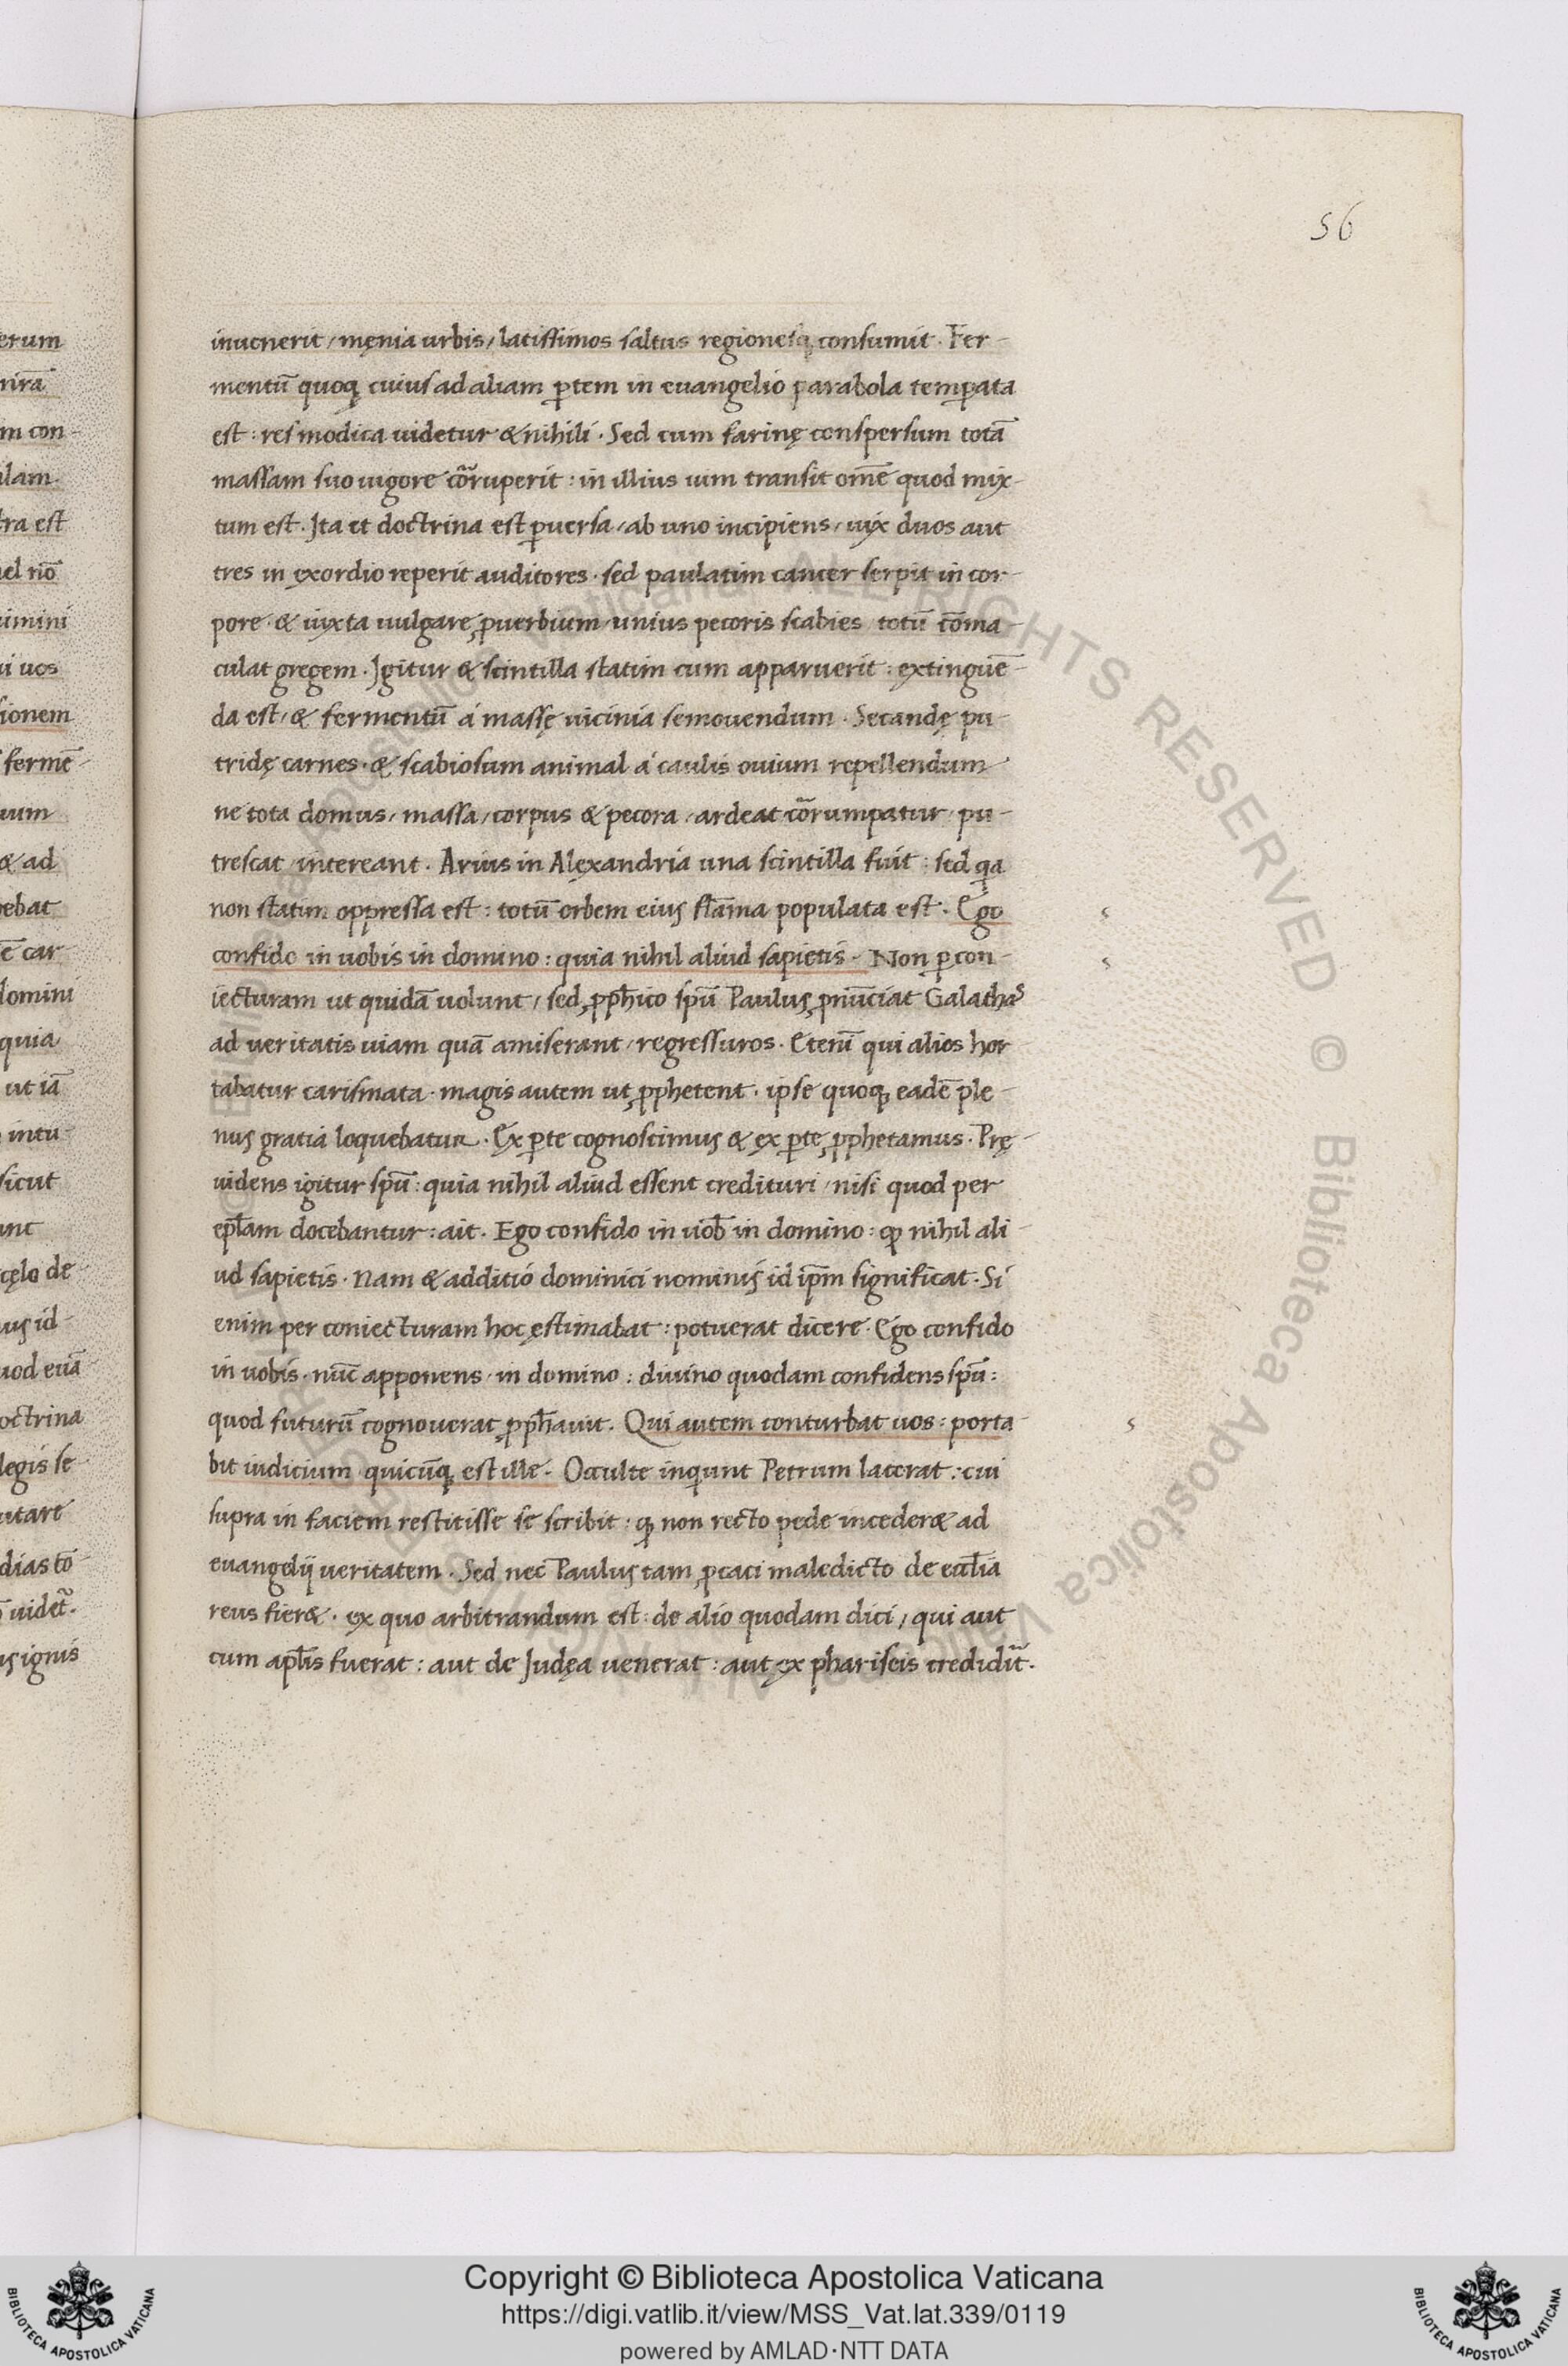 56
inuenerit / męnia urbis / latissimos saltus regionesq; consumit . Fer-
mentū quoq; cuius ad aliam ꝑtem in euangelio parabola temꝑata
est : res modica uidetur & nihili . Sed cum farinę conspersum totā
massam suo uigore cōruperit : in illius uim transit om̄e quod mix-
tum est . Ita et doctrina est ꝑuersa / ab uno incipiens / uix duos aut
tres in exordio reperit auditores . sed paulatim cancer serpit in cor-
pore . & iuxta uulgare ꝓuerbium / unius pecoris scabies totū cōma-
culat gregem . Igitur & scintilla statim cum apparuerit : extinguē-
da est / & fermentū á massę uicinia semouendum . Secandę pu-
tridę carnes . & scabiosum animal á caulis ouium repellendum
ne tota domus / massa / corpus & pecora / ardeat cōrumpatur / pu-
trescat / intereant . Arius in Alęxandria una scintilla fuit : sed qa
non statim oppressa est : totū orbem eius flāma populata est . Ego
confido in uobis in domino : quia nihil aliud sapietis . Non ꝑ con-
iecturam ut quidā uolunt / sed ꝓph̄ico spū Paulus ꝓnūciat Galathas
ad ueritatis uiam quā amiserant / regressuros . Etenī qui alios hor
tabatur carismata . magis autem ut ꝓphetent . ipse quoq; eadē ple-
nus gratia loquebatur . Ex ꝑte cognoscimus & ex ꝑte ꝓphetamus . Prę-
uidens igitur spū : quia nihil aliud essent credituri / nisi quod per
ep̄lam docebantur : ait . Ego confido in uob̄ in domino : qꝫ nihil ali-
ud sapietis . Nam & additio dominici nominis id ip̄m significat . Si
enim per coniecturam hoc ęstimabat : potuerat dicere . Ego confido
in uobis . nūc apponens / in domino : diuino quodam confidens spū :
quod futurū cognouerat ꝓph̄auit . Qui autem conturbat uos : porta-
bit iudicium quicūq; est ille . Occulte inqunt Petrum lacerat : cui
supra in faciem restitisse se scribit : qꝫ non recto pede inceder& ad
euangelij ueritatem . Sed nec Paulus tam ꝓcaci maledicto de eccl̄ia
reus fier& . ex quo arbitrandum est : de alio quodam dici / qui aut
cum apl̄is fuerat : aut de Iudęa uenerat : aut ex phariseis credidit̄ .
Copyright © Biblioteca Apostolica Vaticana
https://digi.vatlib.it/view/MSS_Vat.lat.339/0119
powered by AMLAD·NTT DATA